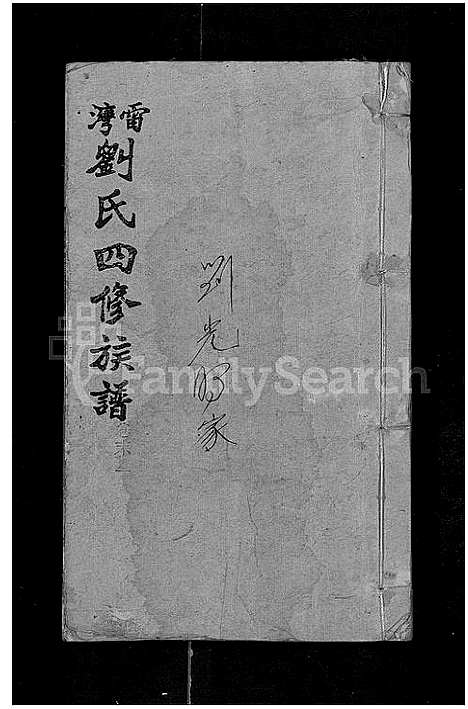 雷灣劉氏四修族譜
劉光明家
FamilySearch